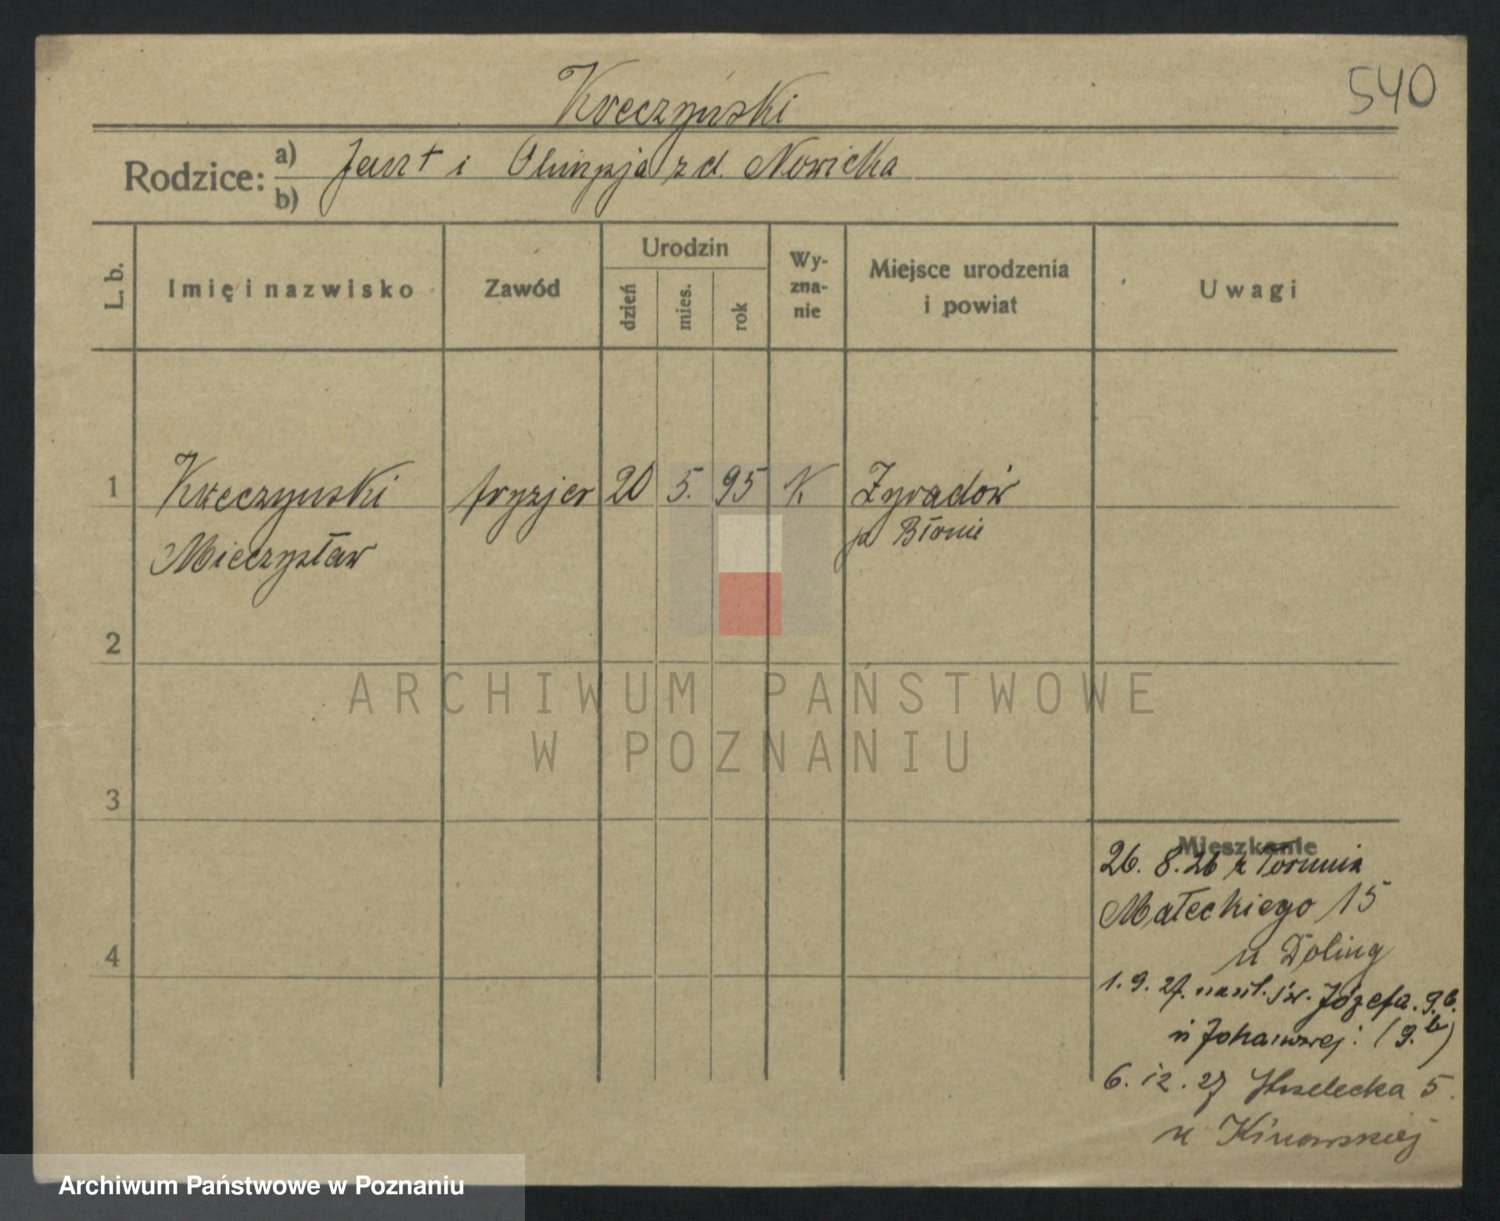 540
Kreczyński
Rodzice: a) Jan + i Olimpja z d. Nowicka
b)
L. b.
Imię i nazwisko
Zawód
Urodzin
dzień
mies.
rok
Wy-
zna-
nie
Miejsce urodzenia
i powiat
Uwagi
1 Kreczynski fryzjer 20 5. 95 K Żyradów
Mieczysław p Błonie
2
3
4
ARCHIWUM PAŃSTWOWE
W POZNANIU
Mieszkanie
26. 8. 26 z Torunia
Małeckiego 15
u Doling
1. 9. 27. św. Józefa. 9b.
u (9.b)
6. 12. 27 Strzelecka 5.
u Kinowskiej
Archiwum Państwowe w Poznaniu